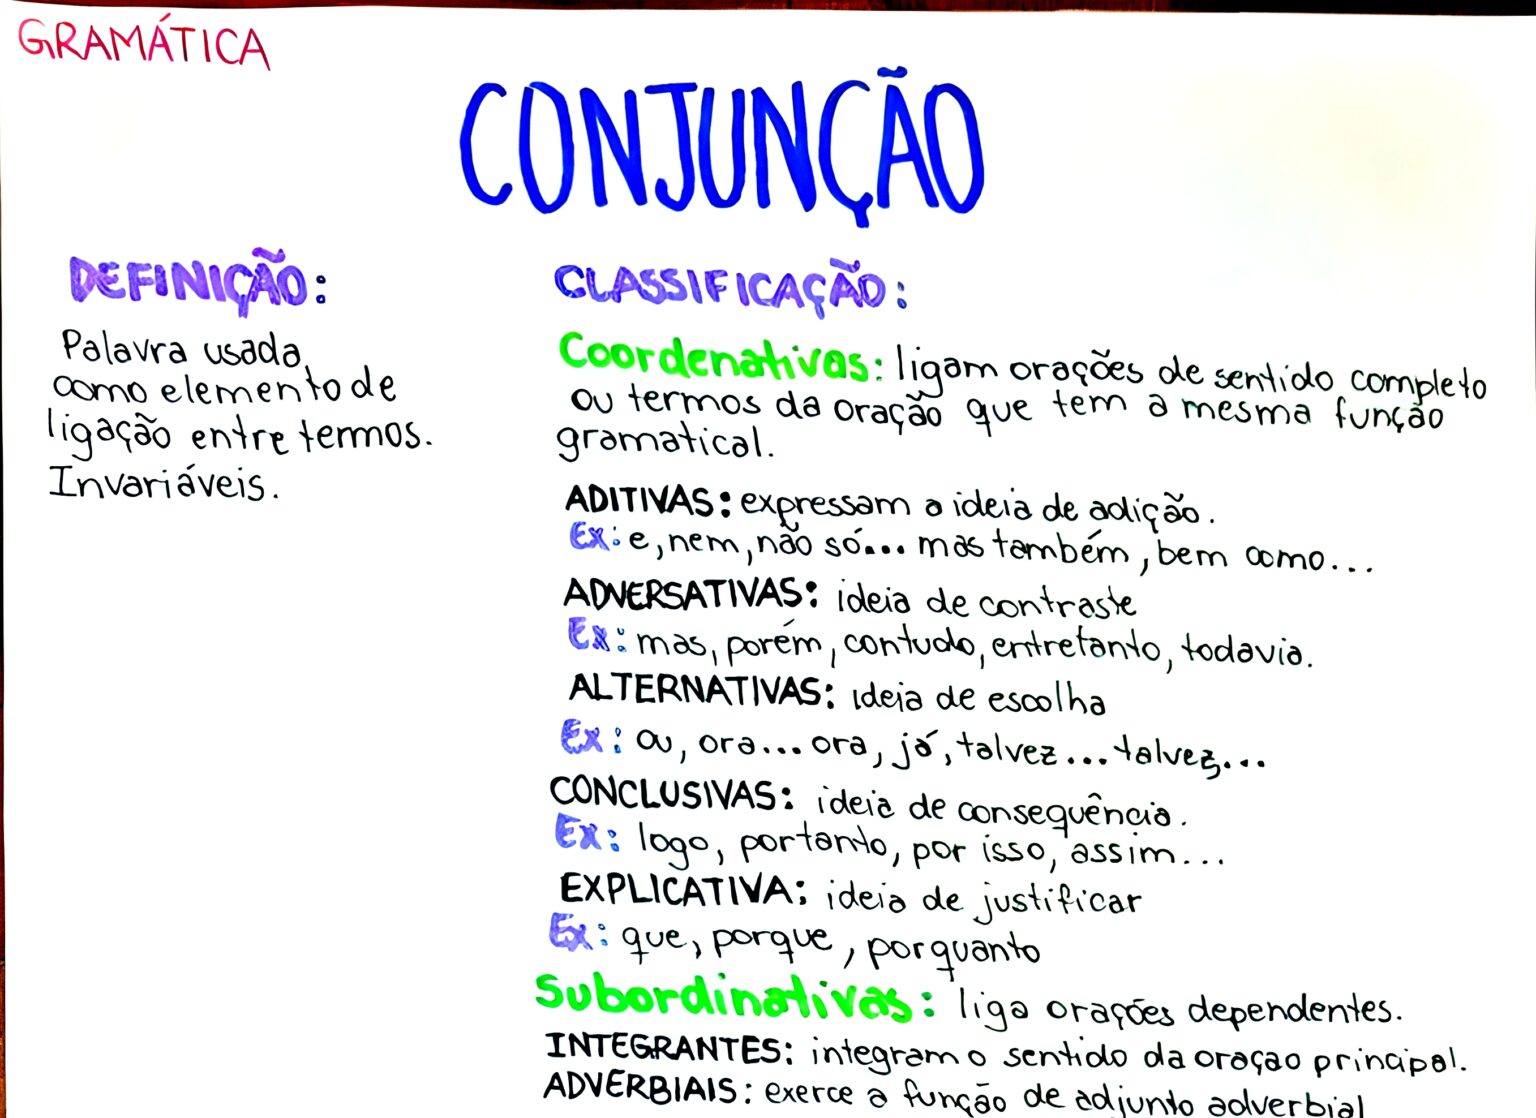 GRAMÁTICA
CONJUNÇÃO
DEFINIÇÃO:
Palavra usada
como elemento de
ligação entre termos.
Invariáveis.
CLASSIFICAÇÃO:
Coordenativas: ligam orações de sentido completo
ou termos da oração que tem a mesma função
gramatical.
ADITIVAS: expressam a ideia de adição.
Ex: e, nem, não só... mas também, bem como...
ADVERSATIVAS: ideia de contraste
Ex: mas, porém, contudo, entretanto, todavia.
ALTERNATIVAS: ideia de escolha
Ex: ou, ora... ora, já, talvez... talvez...
CONCLUSIVAS: ideia de consequência.
Ex: logo, portanto, por isso, assim...
EXPLICATIVA: ideia de justificar
Ex: que, porque, porquanto
Subordinativas: liga orações dependentes.
INTEGRANTES: integram o sentido da oraçao principal.
ADVERBIAIS: exerce a função de adjunto adverbial